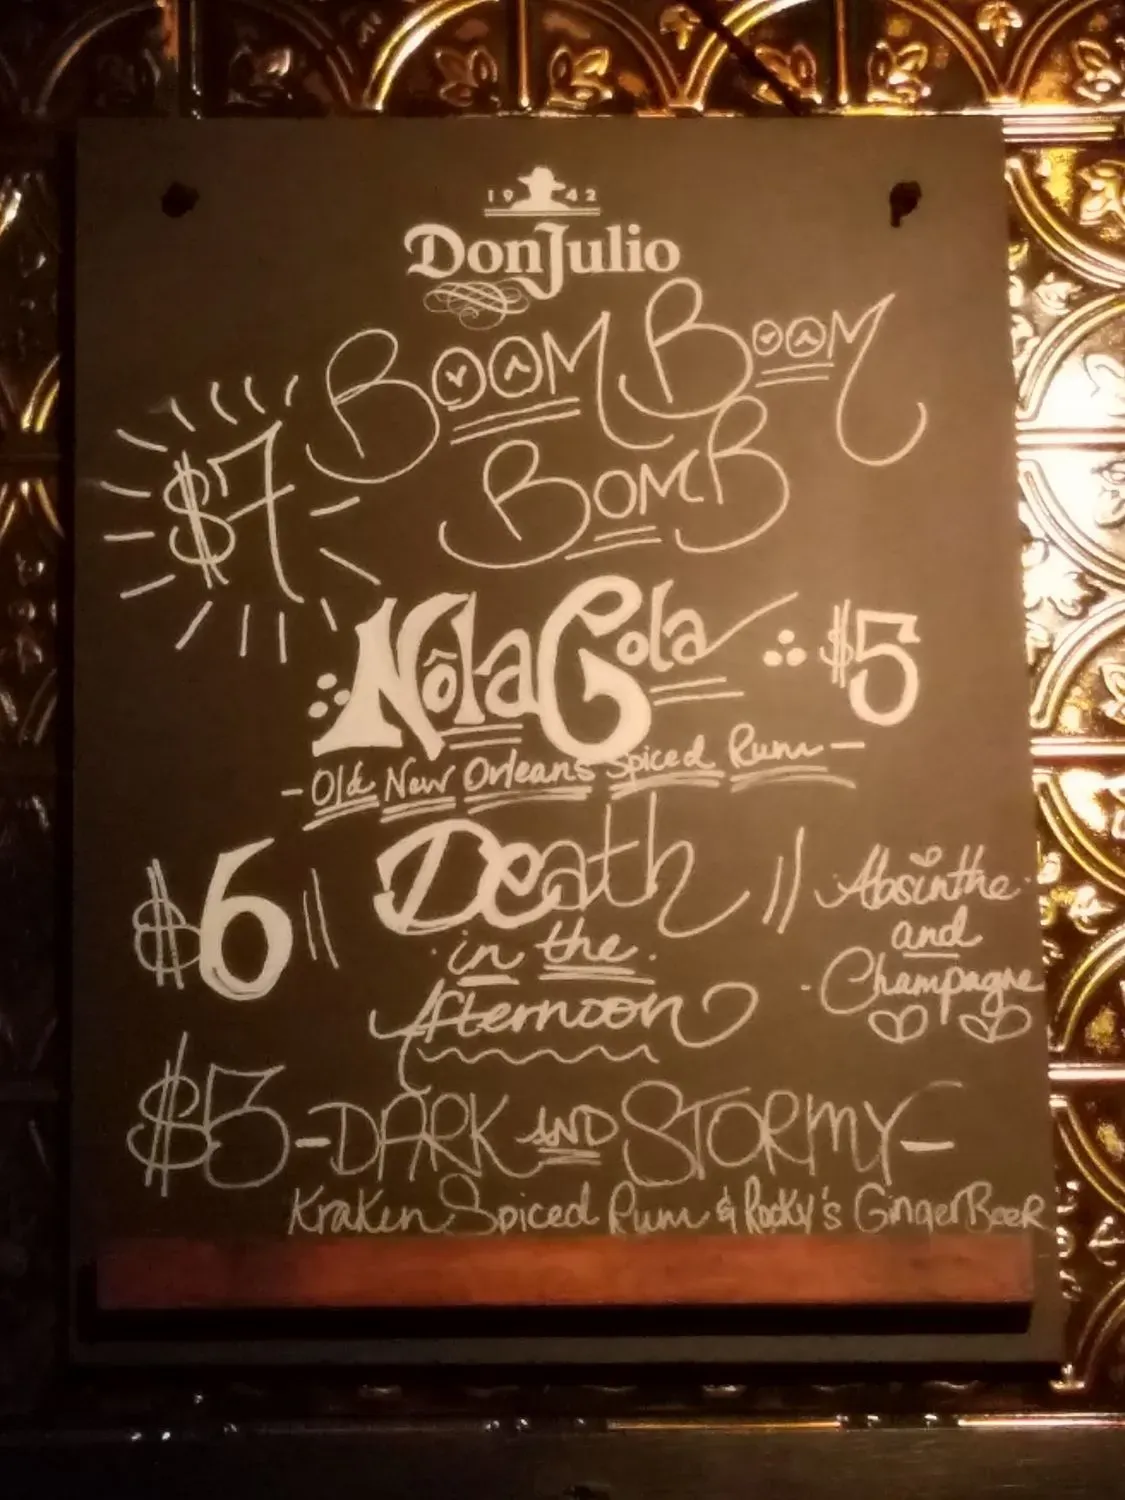 1942
Don Julio
BOOM BOOM
$7 BOMB
Nôla Cola $5
- Old New Orleans Spiced Rum -
$6 || Death || Absinthe
in the and
Afternoon Champagne
$5 - DARK AND STORMY -
Kraken Spiced Rum & Rocky's Ginger Beer